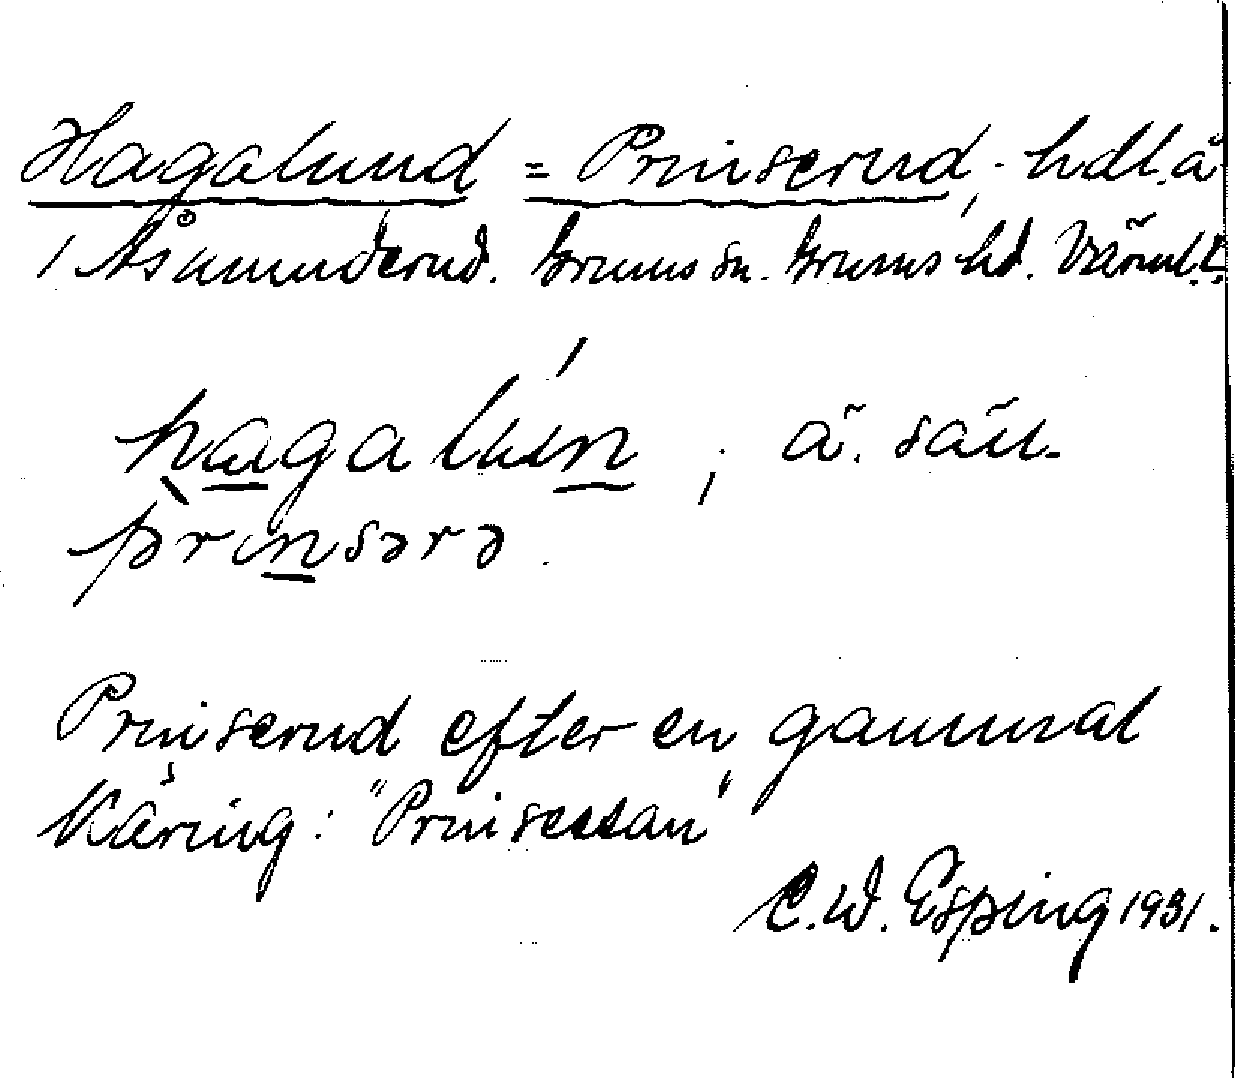 Hagalund = Prinserud, hdl. å
1 Åsmunderud. Grums sn. Grums hd. Värml.
hagalun ; ä. säll.
prinsərə.
Prinserud efter en gammal
käring: "Prinsessan"
C. W. Esping 1931.